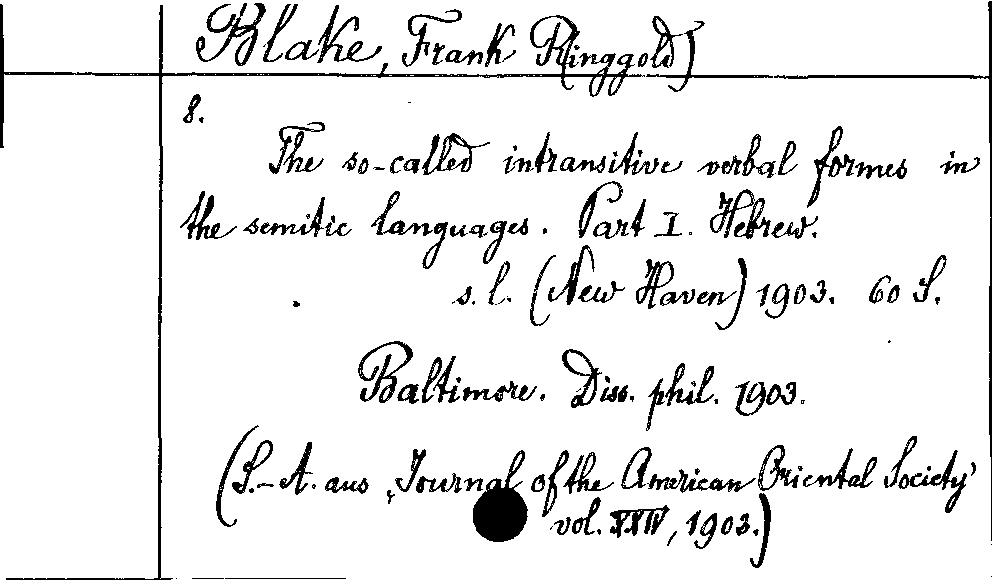 Blake, Frank Ringgold)
8.
The so-called intransitive verbal formes in
the semitic languages. Part I. Hebrew.
s. l. (New Haven) 1903. 60 S.
Baltimore. Diss. phil. 1903.
(S.-A. aus „Journal of the American Oriental Society“
vol. XXIV, 1903.)